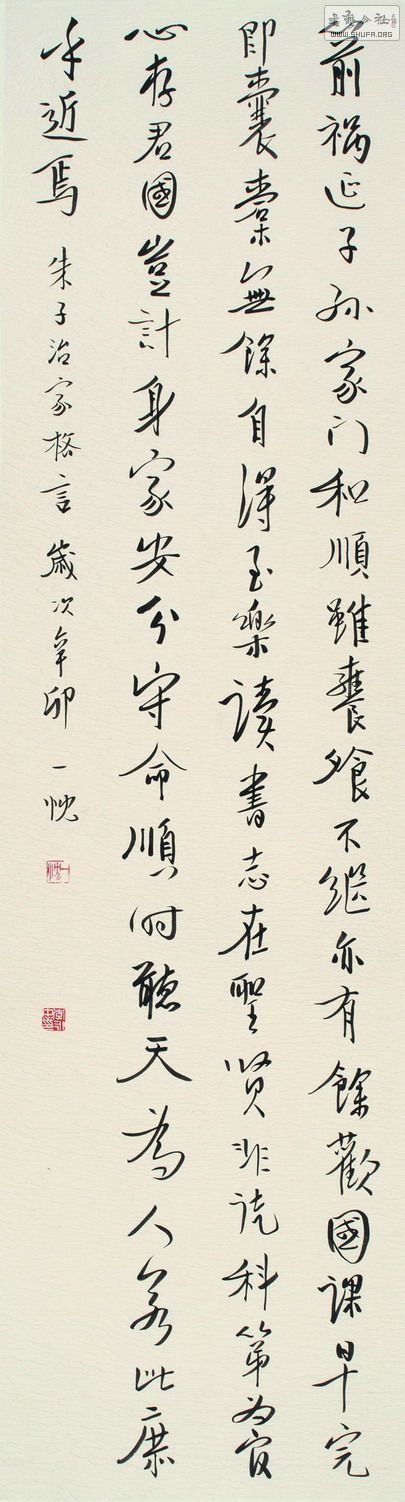 前祸延子孙家门和順雖饔飧不继亦有餘歡國課早完
即囊橐無餘自得至樂读書志在聖贤非徒科第为官
心存君國豈計身家安分守命順时聽天為人若此庶
乎近焉 朱子治家格言 歲次辛卯 一忱
WWW.SHUFA.ORG